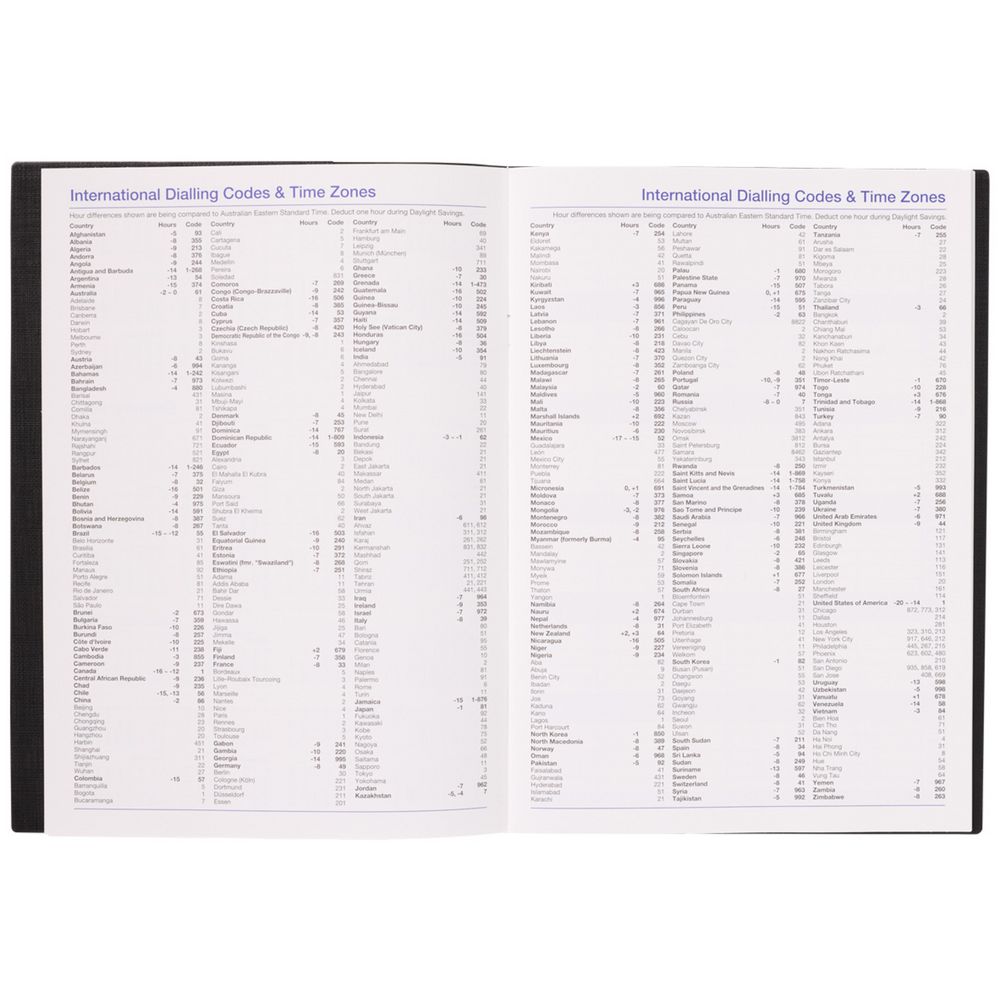 International Dialling Codes & Time Zones
Hour differences shown are being compared to Australian Eastern Standard Time. Deduct one hour during Daylight Savings.
Country Hours Code
Afghanistan -5 93
Albania -8 355
Algeria -9 213
Andorra -8 376
Angola -9 244
Antigua and Barbuda -14 1-268
Argentina -13 54
Armenia -15 374
Australia -2 – 0 61
Adelaide 8
Brisbane 7
Canberra 2
Darwin 8
Hobart 3
Melbourne 3
Perth 8
Sydney 2
Austria -8 43
Azerbaijan -6 994
Bahamas -14 1-242
Bahrain -7 973
Bangladesh -4 880
Barisal 431
Chittagong 31
Comilla 81
Dhaka 2
Khulna 41
Mymensingh 91
Narayanganj 671
Rajshahi 721
Rangpur 521
Sylhet 821
Barbados -14 1-246
Belarus -7 375
Belgium -8 32
Belize -16 501
Benin -9 229
Bhutan -4 975
Bolivia -14 591
Bosnia and Herzegovina -8 387
Botswana -8 267
Brazil -15 – -12 55
Belo Horizonte 31
Brasilia 61
Curitiba 41
Fortaleza 85
Manaus 92
Porto Alegre 51
Recife 81
Rio de Janeiro 21
Salvador 71
São Paulo 11
Brunei -2 673
Bulgaria -7 359
Burkina Faso -10 226
Burundi -8 257
Côte d'Ivoire -10 225
Cabo Verde -11 238
Cambodia -3 855
Cameroon -9 237
Canada -16 – -12 1
Central African Republic -9 236
Chad -9 235
Chile -15, -13 56
China -2 86
Beijing 10
Chengdu 28
Chongqing 23
Guangzhou 20
Hangzhou 20
Harbin 451
Shanghai 21
Shijiazhuang 311
Tianjin 22
Wuhan 27
Colombia -15 57
Barranquilla 5
Bogota 1
Bucaramanga 7
Country Hours Code
Cali 2
Cartagena 5
Cucuta 7
Ibague 8
Medellin 4
Pereira 6
Soledad 831
Comoros -7 269
Congo (Congo-Brazzaville) -9 242
Costa Rica -16 506
Croatia -8 385
Cuba -14 53
Cyprus -7 357
Czechia (Czech Republic) -8 420
Democratic Republic of the Congo -9, -8 243
Kinshasa 1
Bukavu
Goma 6
Kananga 4
Kisangani 5
Kolwezi 2
Lubumbashi 2
Masina 1
Mbuji-Mayi 4
Tshikapa 4
Denmark -8 45
Djibouti -7 253
Dominica -14 767
Dominican Republic -14 1-809
Ecuador -15 593
Egypt -8 20
Alexandria 3
Cairo 2
El Mahalla El Kubra 40
Faiyum 84
Giza 2
Mansoura 50
Port Said 66
Shubra El Kheima 2
Suez 62
Tanta 40
El Salvador -16 503
Equatorial Guinea -9 240
Eritrea -10 291
Estonia -7 372
Eswatini (fmr. "Swaziland") -8 268
Ethiopia -7 251
Adama 11
Addis Ababa 11
Bahir Dar 58
Dessie 33
Dire Dawa 25
Gondar 58
Hawassa 46
Jijiga 25
Jimma 47
Mekelle 34
Fiji +2 679
Finland -7 358
France -8 33
Bordeaux 5
Lille-Roubaix Tourcoing 3
Lyon 4
Marseille 4
Nantes 2
Nice 4
Paris 1
Rennes 2
Strasbourg 3
Toulouse 5
Gabon -9 241
Gambia -10 220
Georgia -14 995
Germany -8 49
Berlin 30
Cologne (Köln) 221
Dortmund 231
Düsseldorf 211
Essen 201
Country Hours Code
Frankfurt am Main 69
Hamburg 40
Leipzig 341
Munich (München) 89
Stuttgart 711
Ghana -10 233
Greece -7 30
Grenada -14 1-473
Guatemala -16 502
Guinea -10 224
Guinea-Bissau -10 245
Guyana -14 592
Haiti -14 509
Holy See (Vatican City) -8 379
Honduras -16 504
Hungary -8 36
Iceland -10 354
India -5 91
Ahmedabad 79
Bangalore 80
Chennai 44
Hyderabad 40
Jaipur 141
Kolkata 33
Mumbai 22
New Delhi 11
Pune 20
Surat 261
Indonesia -3 – -1 62
Bandung 22
Bekasi 21
Depok 21
East Jakarta 21
Makassar 411
Medan 61
North Jakarta 21
South Jakarta 21
Surabaya 31
West Jakarta 21
Iran -6 98
Ahvaz 611, 612
Isfahan 311, 312
Karaj 261, 262
Kermanshah 831, 832
Mashhad 442
Qom 251, 252
Shiraz 711, 712
Tabriz 411, 412
Tehran 21, 221
Urmia 441, 443
Iraq -7 964
Ireland -9 353
Israel -7 972
Italy -8 39
Bari 80
Bologna 51
Catania 95
Florence 55
Genoa 10
Milan 2
Naples 81
Palermo 91
Rome 6
Turin 11
Jamaica -15 1-876
Japan -1 81
Fukuoka 92
Kawasaki 44
Kobe 78
Kyoto 75
Nagoya 52
Osaka 66
Saitama 48
Sapporo 11
Tokyo 3
Yokohama 45
Jordan -7 962
Kazakhstan -5, -4 7
International Dialling Codes & Time Zones
Hour differences shown are being compared to Australian Eastern Standard Time. Deduct one hour during Daylight Savings.
Country Hours Code
Kenya -7 254
Eldoret 53
Kakamega 56
Malindi 42
Mombasa 41
Nairobi 20
Nakuru 51
Kiribati +3 686
Kuwait -7 965
Kyrgyzstan -4 996
Laos -3 856
Latvia -7 371
Lebanon -7 961
Lesotho -8 266
Liberia -10 231
Libya -8 218
Liechtenstein -8 423
Lithuania -7 370
Luxembourg -8 352
Madagascar -7 261
Malawi -8 265
Malaysia -2 60
Maldives -5 960
Mali -10 223
Malta -8 356
Marshall Islands +2 692
Mauritania -10 222
Mauritius -6 230
Mexico -17 – -15 52
Guadalajara 33
León 477
Mexico City 55
Monterrey 81
Puebla 222
Tijuana 664
Micronesia 0, +1 691
Moldova -7 373
Monaco -8 377
Mongolia -3, -2 976
Montenegro -8 382
Morocco -9 212
Mozambique -8 258
Myanmar (formerly Burma) -4 95
Bassein 42
Mandalay 2
Mawlamyine 57
Monywa 71
Myeik 59
Prome 53
Thaton 57
Yangon 1
Namibia -8 264
Nauru +2 674
Nepal -4 977
Netherlands -8 31
New Zealand +2, +3 64
Nicaragua -16 505
Niger -9 227
Nigeria -9 234
Aba 82
Abuja 9
Benin City 52
Ibadan 2
Ilorin 31
Jos 73
Kaduna 62
Kano 64
Lagos 1
Port Harcourt 84
North Korea -1 850
North Macedonia -8 389
Norway -8 47
Oman -6 968
Pakistan -5 92
Faisalabad 41
Gujranwala 431
Hyderabad 221
Islamabad 51
Karachi 21
Country Hours Code
Lahore 42
Multan 61
Peshawar 91
Quetta 81
Rawalpindi 51
Palau -1 680
Palestine State -7 970
Panama -15 507
Papua New Guinea 0, +1 675
Paraguay -14 595
Peru -15 51
Philippines -2 63
Cagayan De Oro City 8822
Caloocan 2
Cebu 32
Davao City 82
Manila 2
Quezon City 2
Zamboanga City 62
Poland -8 48
Portugal -10, -9 351
Qatar -7 974
Romania -7 40
Russia -8 – 0 7
Chelyabinsk 351
Kazan 843
Moscow 495
Novosibirsk 383
Omsk 3812
Saint Petersburg 812
Samara 8462
Yekaterinburg 343
Rwanda -8 250
Saint Kitts and Nevis -14 1-869
Saint Lucia -14 1-758
Saint Vincent and the Grenadines -14 1-784
Samoa +3 685
San Marino -8 378
Sao Tome and Principe -10 239
Saudi Arabia -7 966
Senegal -10 221
Serbia -8 381
Seychelles -6 248
Sierra Leone -10 232
Singapore -2 65
Slovakia -8 421
Slovenia -8 386
Solomon Islands +1 677
Somalia -7 252
South Africa -8 27
Bloemfontein 51
Cape Town 21
Durban 31
Johannesburg 11
Port Elizabeth 41
Pretoria 12
Uitenhage 41
Vereeniging 16
Welkom 57
South Korea -1 82
Busan (Pusan) 51
Changwon 55
Daegu 53
Daejeon 42
Goyang 31
Gwangju 62
Incheon 32
Seoul 2
Suwon 31
Ulsan 52
South Sudan -7 211
Spain -8 34
Sri Lanka -5 94
Sudan -8 249
Suriname -13 597
Sweden -8 46
Switzerland -8 41
Syria -7 963
Tajikistan -5 992
Country Hours Code
Tanzania -7 255
Arusha 27
Dar es Salaam 22
Kigoma 28
Mbeya 25
Morogoro 23
Mwanza 28
Tabora 26
Tanga 27
Zanzibar City 24
Thailand -3 66
Bangkok 2
Chanthaburi 39
Chiang Mai 53
Kanchanaburi 34
Khon Kaen 43
Nakhon Ratchasima 44
Nong Khai 42
Phuket 76
Ubon Ratchathani 45
Timor-Leste -1 670
Togo -10 228
Tonga +3 676
Trinidad and Tobago -14 1-868
Tunisia -9 216
Turkey -7 90
Adana 322
Ankara 312
Antalya 242
Bursa 224
Gaziantep 342
Istanbul 212
Izmir 232
Kayseri 352
Konya 332
Turkmenistan -5 993
Tuvalu +2 688
Uganda -7 256
Ukraine -7 380
United Arab Emirates -6 971
United Kingdom -9 44
Birmingham 121
Bristol 117
Edinburgh 131
Glasgow 141
Leeds 113
Leicester 116
Liverpool 151
London 20
Manchester 161
Sheffield 114
United States of America -20 – -14 1
Chicago 872, 773, 312
Dallas 214
Houston 281
Los Angeles 323, 310, 213
New York City 917, 646, 212
Philadelphia 445, 267, 215
Phoenix 623, 602, 480
San Antonio 210
San Diego 935, 858, 619
San Jose 408, 669
Uruguay -13 598
Uzbekistan -5 998
Vanuatu +1 678
Venezuela -14 58
Vietnam -3 84
Bien Hoa 61
Can Tho 71
Da Nang 51
Ha Noi 4
Hai Phong 31
Ho Chi Minh City 8
Hue 54
Nha Trang 58
Vung Tau 64
Yemen -7 967
Zambia -8 260
Zimbabwe -8 263